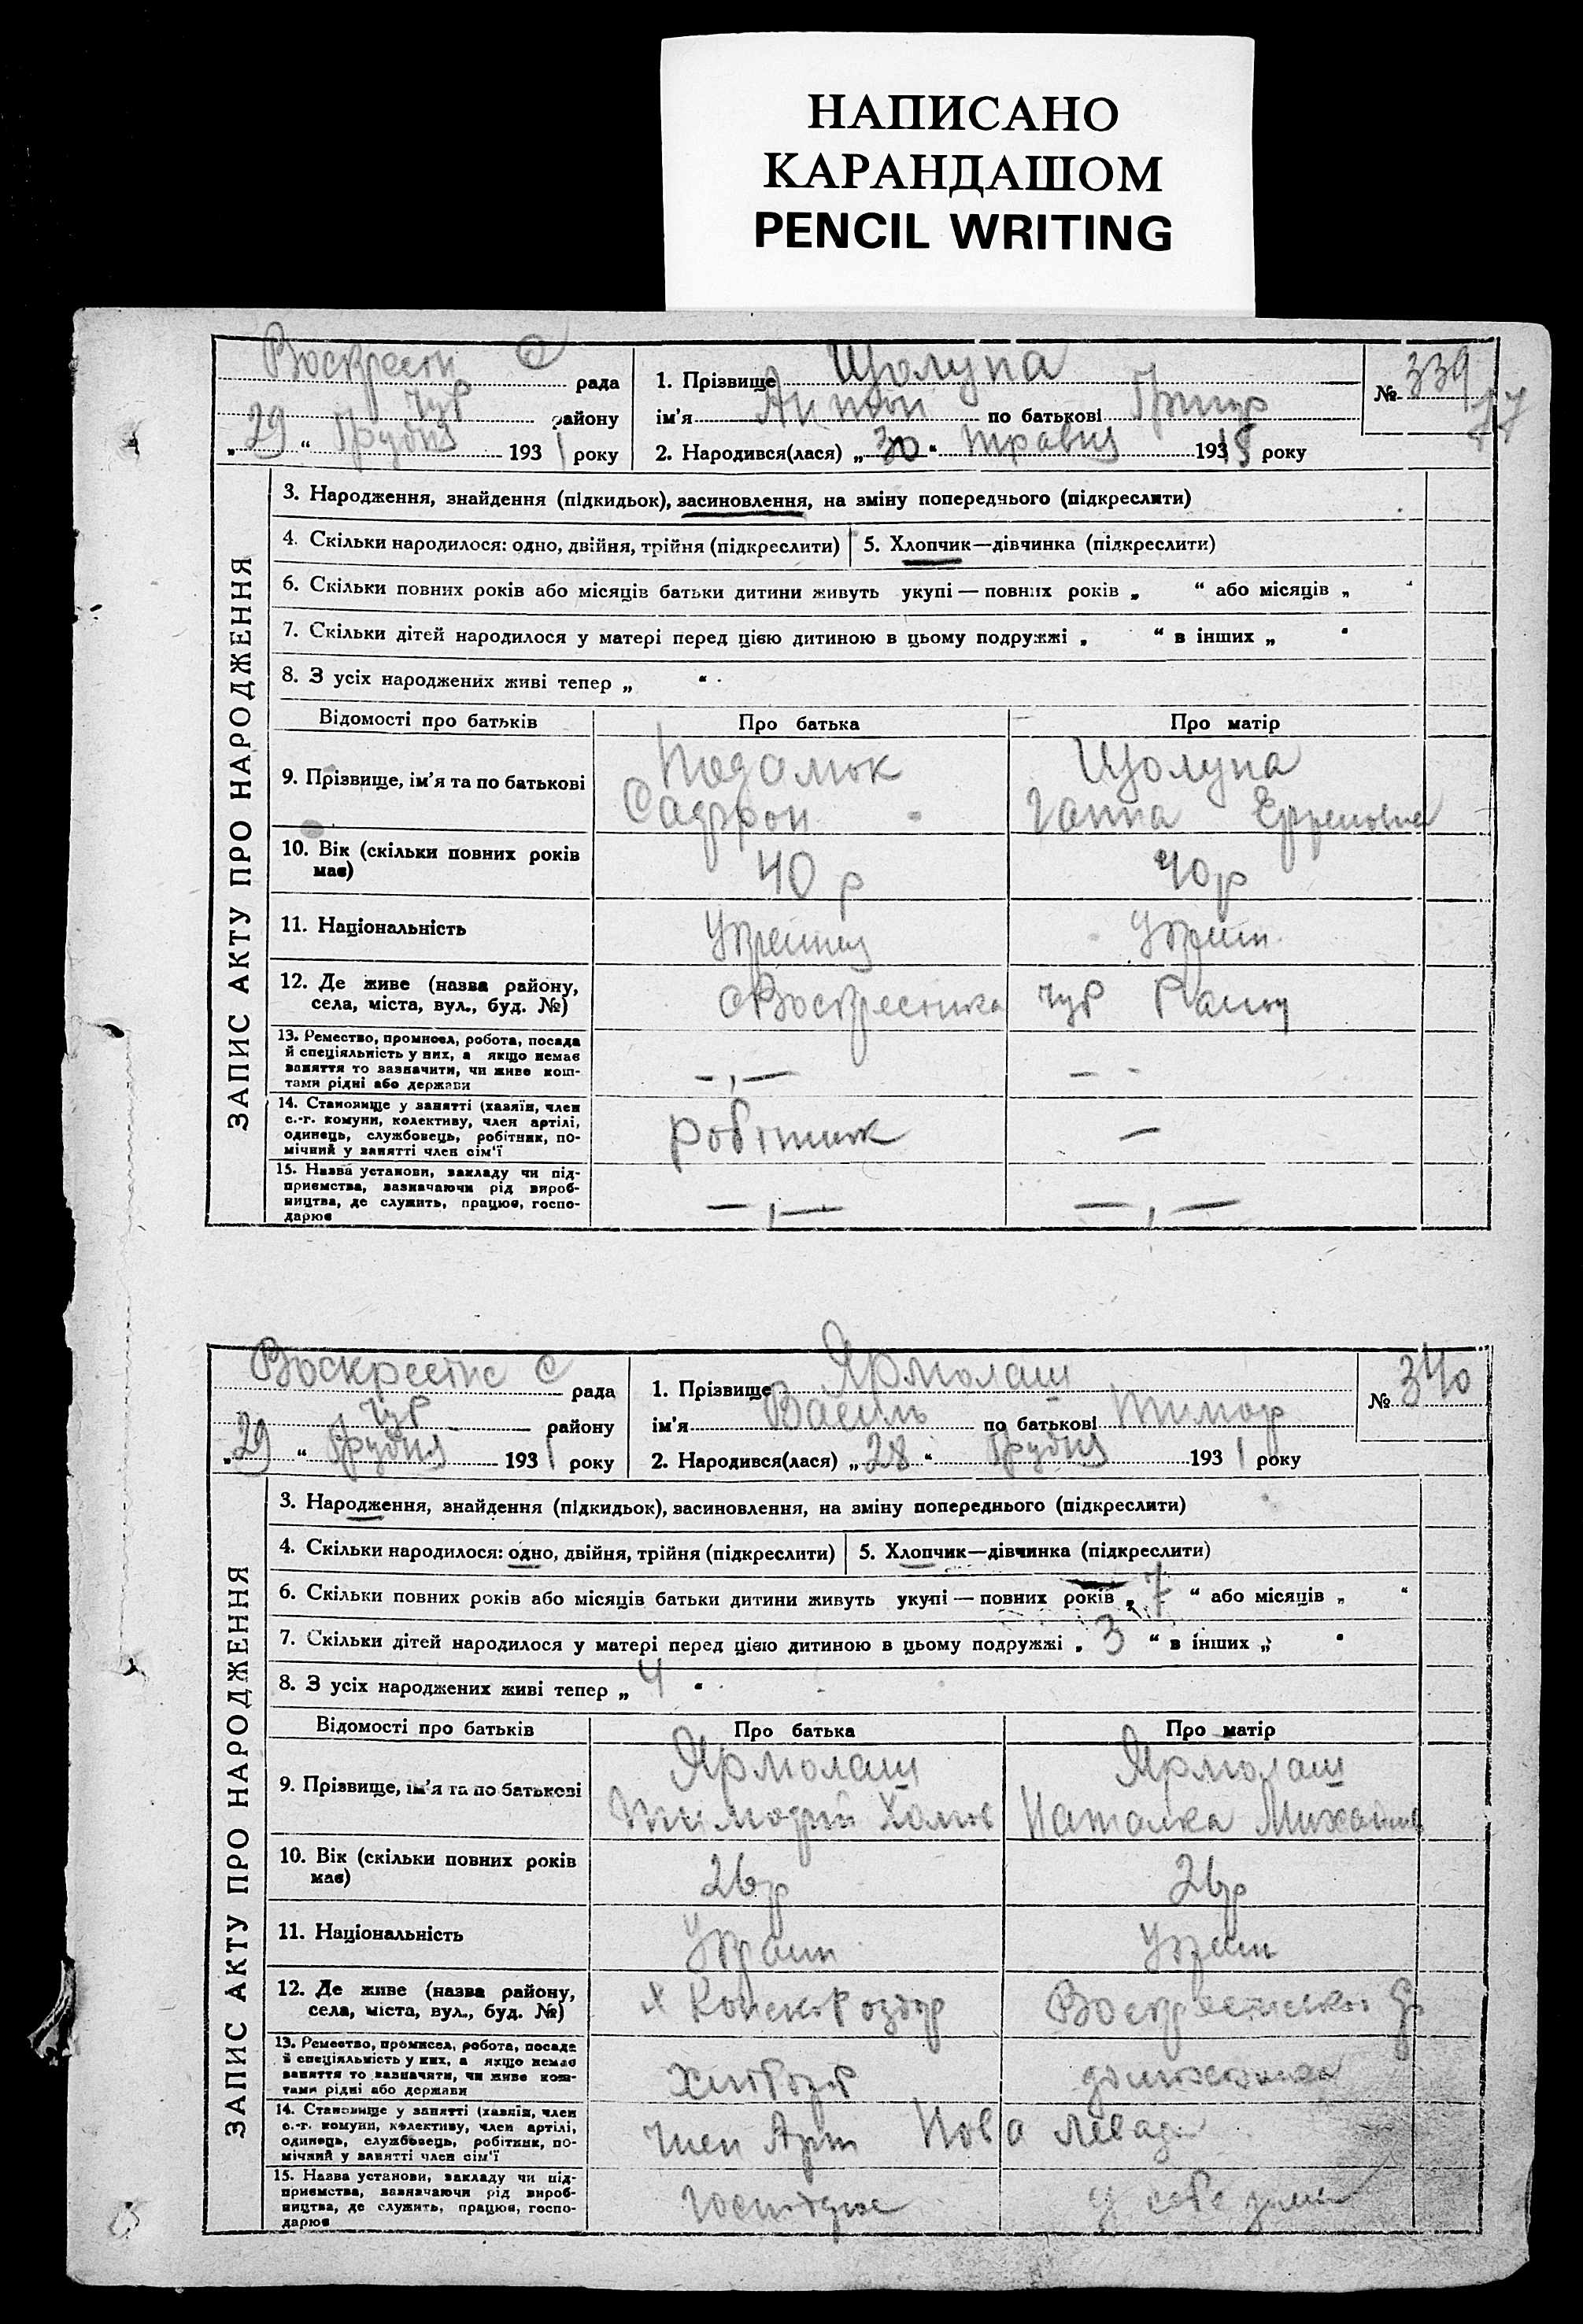 НАПИСАНО
КАРАНДАШОМ
PENCIL WRITING
рада
Чур району
„29“ Грудня 1931 року
1. Прізвище Щолупа
ім’я Антон по батькові Григор
2. Народився(лася) „30“ травня 193 року
№ 339
77
ЗАПИС АКТУ ПРО НАРОДЖЕННЯ
3. Народження, знайдення (підкидьок), засиновлення, на зміну попереднього (підкреслити)
4. Скільки народилося: одно, двійня, трійня (підкреслити)
5. Хлопчик—дівчинка (підкреслити)
6. Скільки повних років або місяців батьки дитини живуть укупі — повних років „ “ або місяців „ “
7. Скільки дітей народилося у матері перед цією дитиною в цьому подружжі „ “ в інших „ “
8. З усіх народжених живі тепер „ “
Відомості про батьків
Про батька
Про матір
9. Прізвище, ім’я та по батькові
Щолупа
Ганна
10. Вік (скільки повних років
має)
40 р
40р
11. Національність
12. Де живе (назва району,
села, міста, вул., буд. №)
чур
13. Ремество, промисел, робота, посада
й спеціяльність у них, а якщо немає
заняття то зазначити, чи живе кош-
тами рідні або держави
14. Становище у занятті (хазяїн, член
с.-г. комуни, колективу, член артілі,
одинець, службовець, робітник, по-
мічний у занятті член сім’ї
робітник
15. Назва установи, закладу чи під-
приємства, зазначаючи рід вироб-
ництва, де служить, працює, госпо-
дарює
с рада
Чур району
„29“ Грудня 1931 року
1. Прізвище Ярмолаш
ім’я Василь по батькові Тимоф
2. Народився(лася) „28“ Грудня 1931 року
№ 340
ЗАПИС АКТУ ПРО НАРОДЖЕННЯ
3. Народження, знайдення (підкидьок), засиновлення, на зміну попереднього (підкреслити)
4. Скільки народилося: одно, двійня, трійня (підкреслити)
5. Хлопчик—дівчинка (підкреслити)
6. Скільки повних років або місяців батьки дитини живуть укупі — повних років „7“ або місяців „ “
7. Скільки дітей народилося у матері перед цією дитиною в цьому подружжі „3“ в інших „ “
8. З усіх народжених живі тепер „4“
Відомості про батьків
Про батька
Про матір
9. Прізвище, ім’я та по батькові
Ярмолаш
Тимофій
Ярмолаш
Наталка
10. Вік (скільки повних років
має)
26р
26р
11. Національність
12. Де живе (назва району,
села, міста, вул., буд. №)
13. Ремество, промисел, робота, посада
й спеціяльність у них, а якщо немає
заняття то зазначити, чи живе кош-
тами рідні або держави
14. Становище у занятті (хазяїн, член
с.-г. комуни, колективу, член артілі,
одинець, службовець, робітник, по-
мічний у занятті член сім’ї
член Арт Нова
15. Назва установи, закладу чи під-
приємства, зазначаючи рід вироб-
ництва, де служить, працює, госпо-
дарює
у себе дома